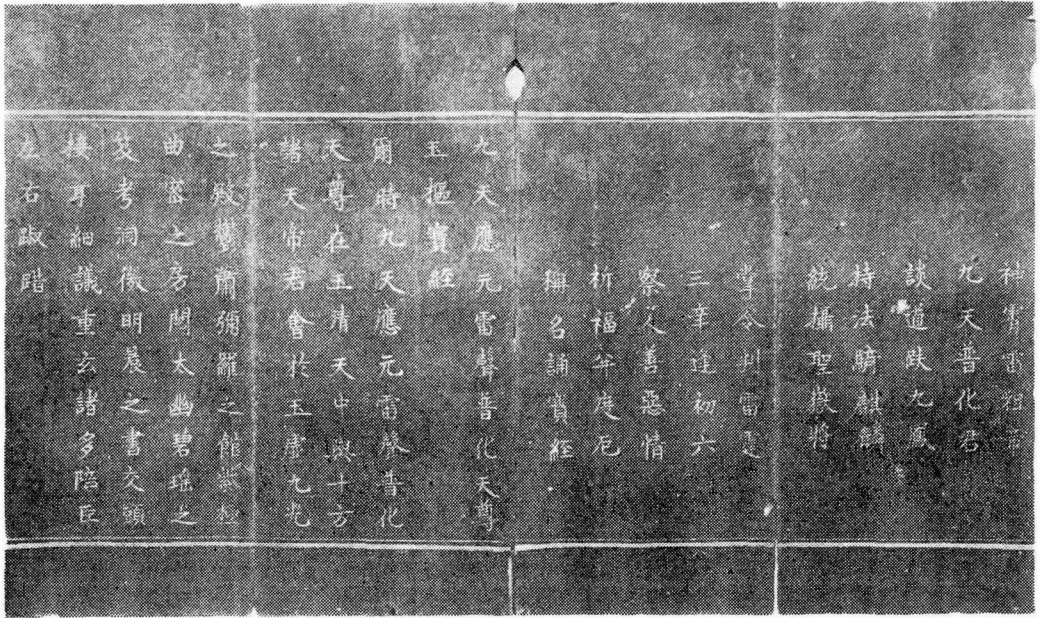 神霄雷祖帝
九天普化君
談道趺九鳳
持法騎麒麟
統攝聖嶽將
掌令判雷霆
三辛逢初六
察人善惡情
祈福并度厄
稱名誦寶經
九天應元雷聲普化天尊
玉樞寶經
爾時九天應元雷聲普化
天尊在玉清天中與十方
諸天帝君會於玉虛九光
之殿鬱蕭彌羅之館紫極
曲密之房閱太幽碧瑤之
笈考洞微明晨之書交頭
接耳細議重玄諸多陪臣
左右踧踖